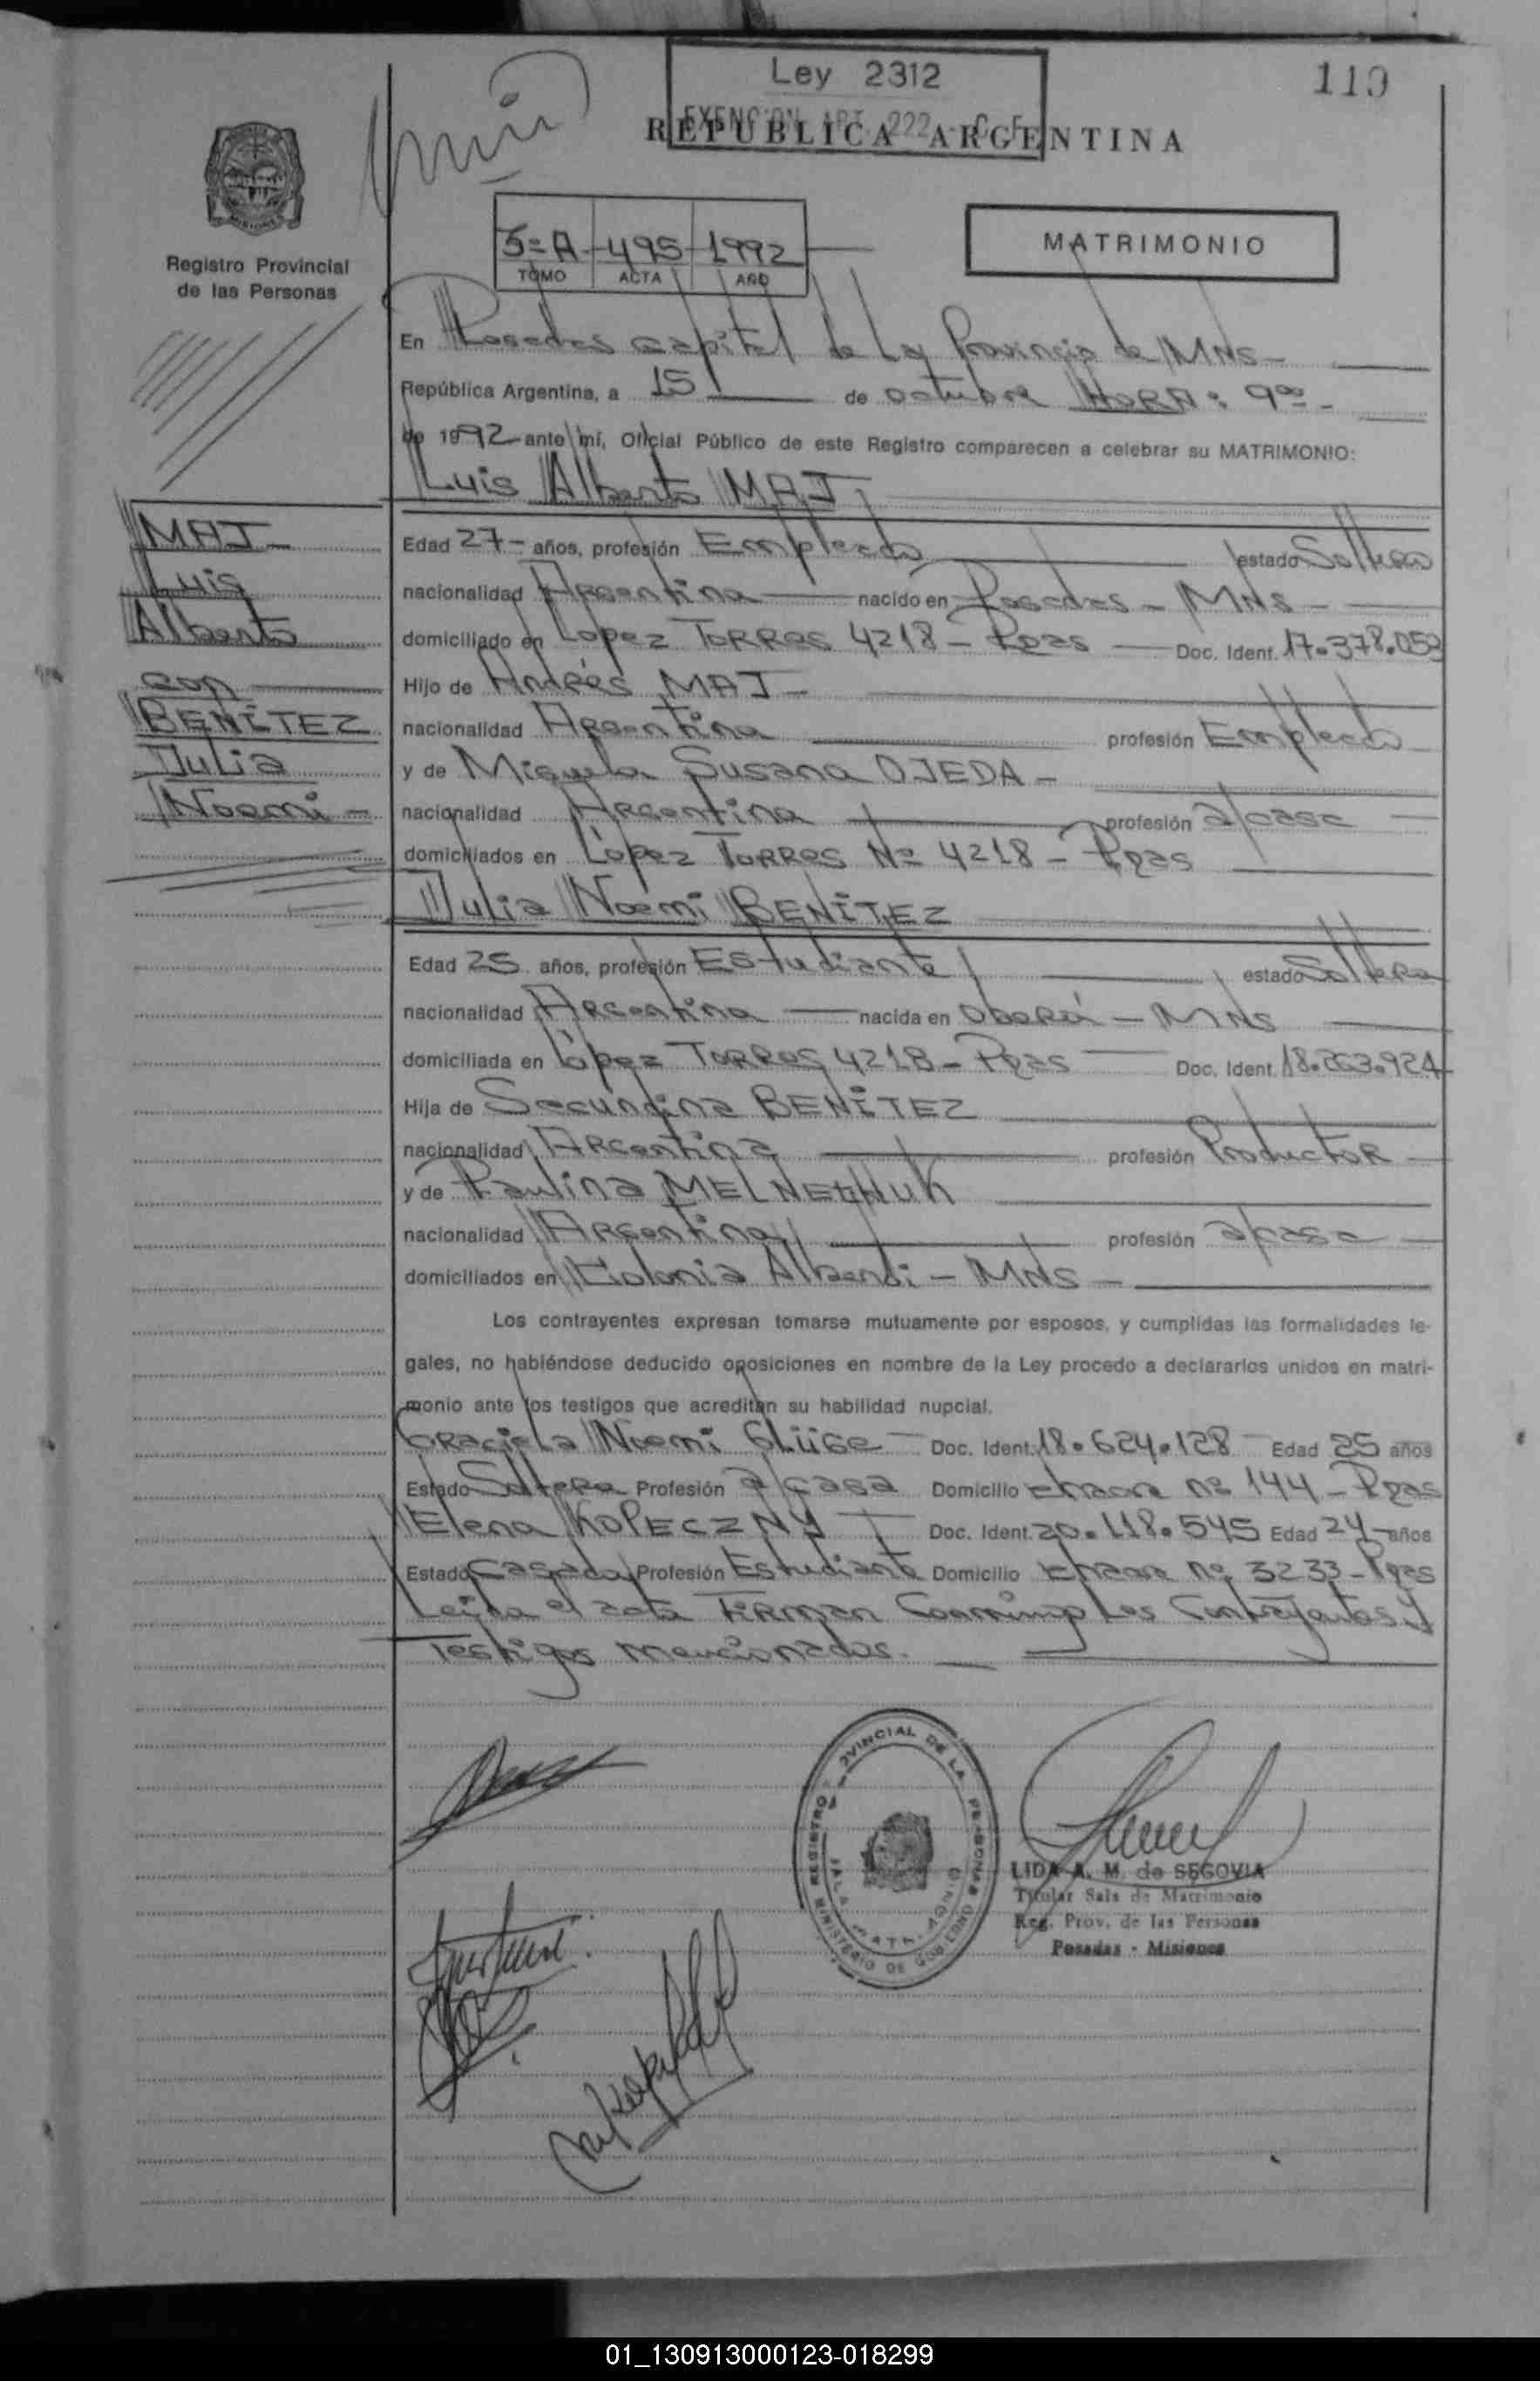 Ley 2312
119
EXENCION ART. 222 C. F.
REPUBLICA ARGENTINA
5=A - 495 - 1992
TOMO ACTA AÑO
MATRIMONIO
Registro Provincial
de las Personas
En Posadas capital de la Provincia de MNS -
República Argentina, a 15 de octubre HORA: 9 00 -
de 1992 ante mí, Oficial Público de este Registro comparecen a celebrar su MATRIMONIO:
Luis Alberto MAJ
MAJ -
Luis
Alberto
con
BENÍTEZ
Julia
Noemi -
Edad 27 - años, profesión Empleado estado Soltero
nacionalidad Argentina nacido en Posadas - MNS -
domiciliado en Lopez Torres 4218 - Pdas Doc. Ident. 17.378.059
Hijo de Andrés MAJ -
nacionalidad Argentina profesión Empleado
y de Miguela Susana OJEDA -
nacionalidad Argentina profesión a/casa
domiciliados en López Torres Nº 4218 - Pdas
Julia Noemi BENÍTEZ
Edad 25 años, profesión Estudiante estado Soltera
nacionalidad Argentina nacida en Oberá - MNS
domiciliada en López Torres 4218 - Pdas Doc. Ident. 18.263.924
Hija de Secundino BENÍTEZ
nacionalidad Argentina profesión Productor
y de Paulina
nacionalidad Argentina profesión a/casa
domiciliados en Colonia Alberdi - MNS -
Los contrayentes expresan tomarse mutuamente por esposos, y cumplidas las formalidades le-
gales, no habiéndose deducido oposiciones en nombre de la Ley procedo a declararlos unidos en matri-
monio ante los testigos que acreditan su habilidad nupcial.
Graciela Noemi GLÜGE Doc. Ident. 18.624.128 Edad 25 años
Estado Soltera Profesión a/casa Domicilio chacra nº 144 - Pdas
Elena KOPECZNY Doc. Ident. 20.118.545 Edad 24 años
Estado Casada Profesión Estudiante Domicilio chacra nº 3233 - Pdas
Leída el acta Firman Conmigo Los Contrayentes y
Testigos mencionados.
REGISTRO PROVINCIAL DE LA PERSONAS
SALA MATRIMONIO
MINISTERIO DE GOBIERNO
LIDA A. M. de SEGOVIA
Titular Sala de Matrimonio
Reg. Prov. de las Personas
Posadas - Misiones
01_130913000123-018299